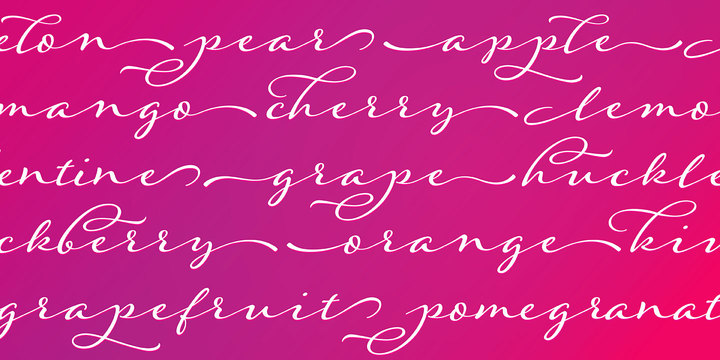 elon pears apple c
mango cherry lemo
entines grape huckle
ckberry orange kiw
grapefruits pomegranat